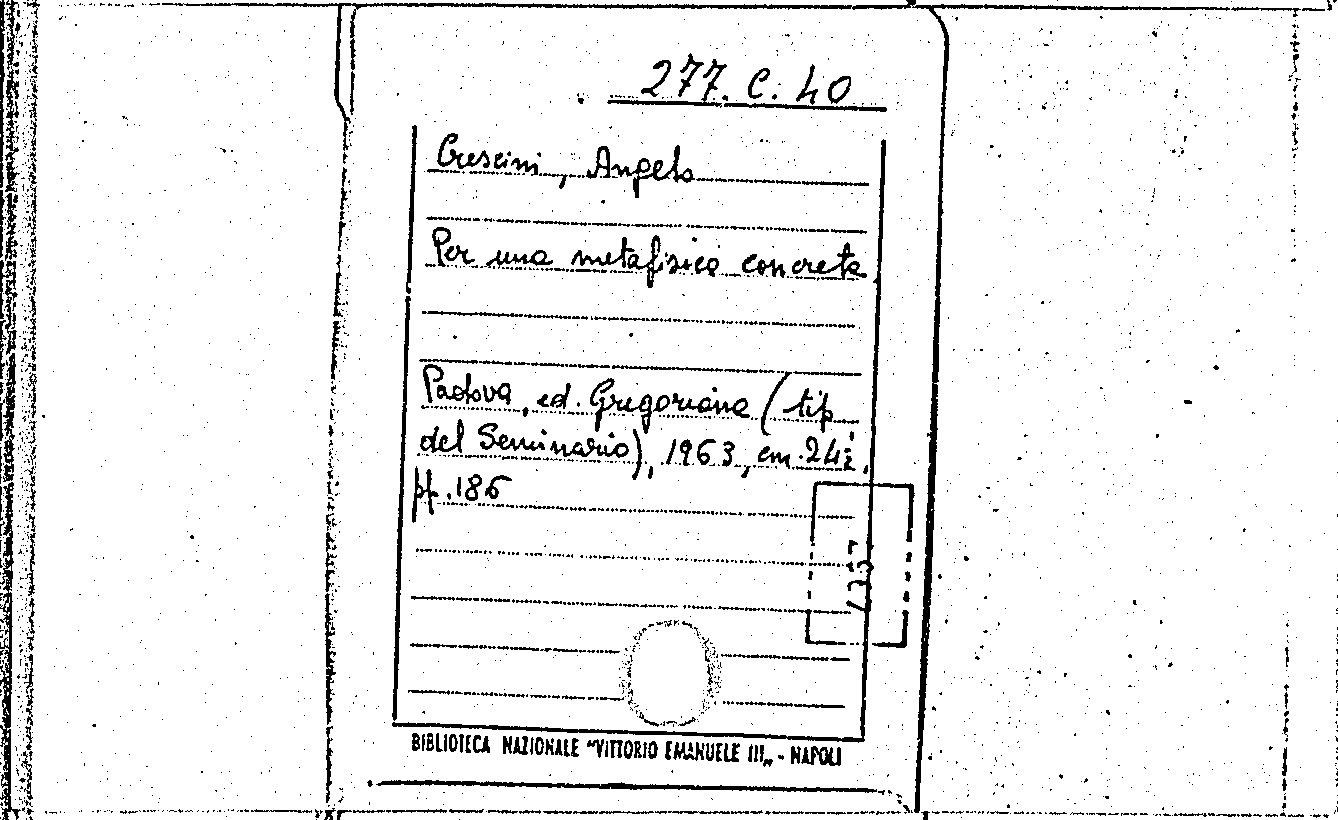 277. C. 40
Crescini, Angelo
Per una metafisica concreta.
Padova, ed. Gregoriana (tip.
del Seminario), 1963, cm. 24½,
pp. 186
BIBLIOTECA NAZIONALE "VITTORIO EMANUELE III„ - NAPOLI